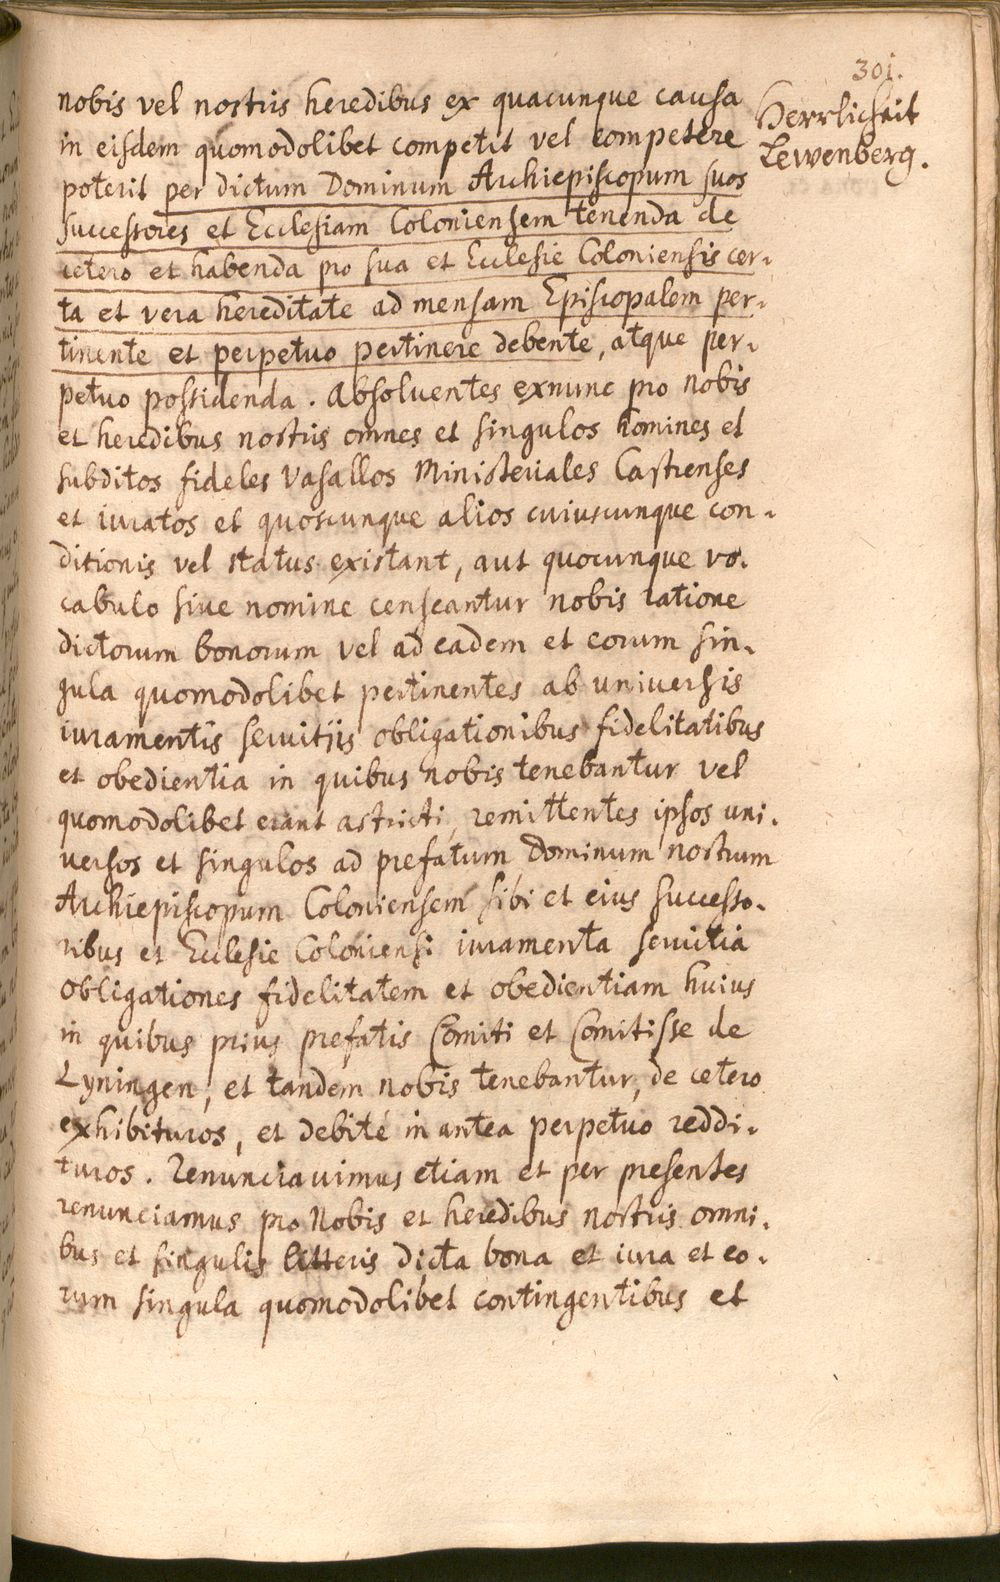 301.
Herrlichkeit
Lewenberg.
nobis vel nostris heredibus ex quacunque causa
in eisdem quomodolibet competit vel competere
poterit per dictum Dominum Archiepiscopum suos
successores et Ecclesiam Coloniensem tenenda de
cetero et habenda pro sua et Ecclesie Coloniensis cer-
ta et vera hereditate ad mensam Episcopalem per-
tinente et perpetuo pertinere debente, atque per-
petuo possidenda. Absoluentes exnunc pro nobis
et heredibus nostris omnes et singulos homines et
subditos fideles Vasallos Ministeriales Castrenses
et iuratos et quoscunque alios cuiuscunque con-
ditionis vel status existant, aut quocunque vo.
cabulo siue nomine censeantur nobis ratione
dictorum bonorum vel ad eadem et eorum sin-
gula quomodolibet pertinentes ab universis
iuramentis seruitijs obligationibus fidelitatibus
et obedientia in quibus nobis tenebantur vel
quomodolibet erant astricti, remittentes ipsos uni-
versos et singulos ad prefatum Dominum nostrum
Archiepiscopum Coloniensem sibi et eius successo-
ribus et Ecclesie Coloniensi iuramenta seruitia
obligationes fidelitatem et obedientiam huius
in quibus prius prefatis Comiti et Comitisse de
Lyningen, et tandem nobis tenebantur, de cetero
exhibituros, et debité in antea perpetuo reddi-
turos. Renunciauimus etiam et per presentes
renunciamus pro Nobis et heredibus nostris omni-
bus et singulis litteris dicta bona et iura et eo-
rum singula quomodolibet contingentibus et